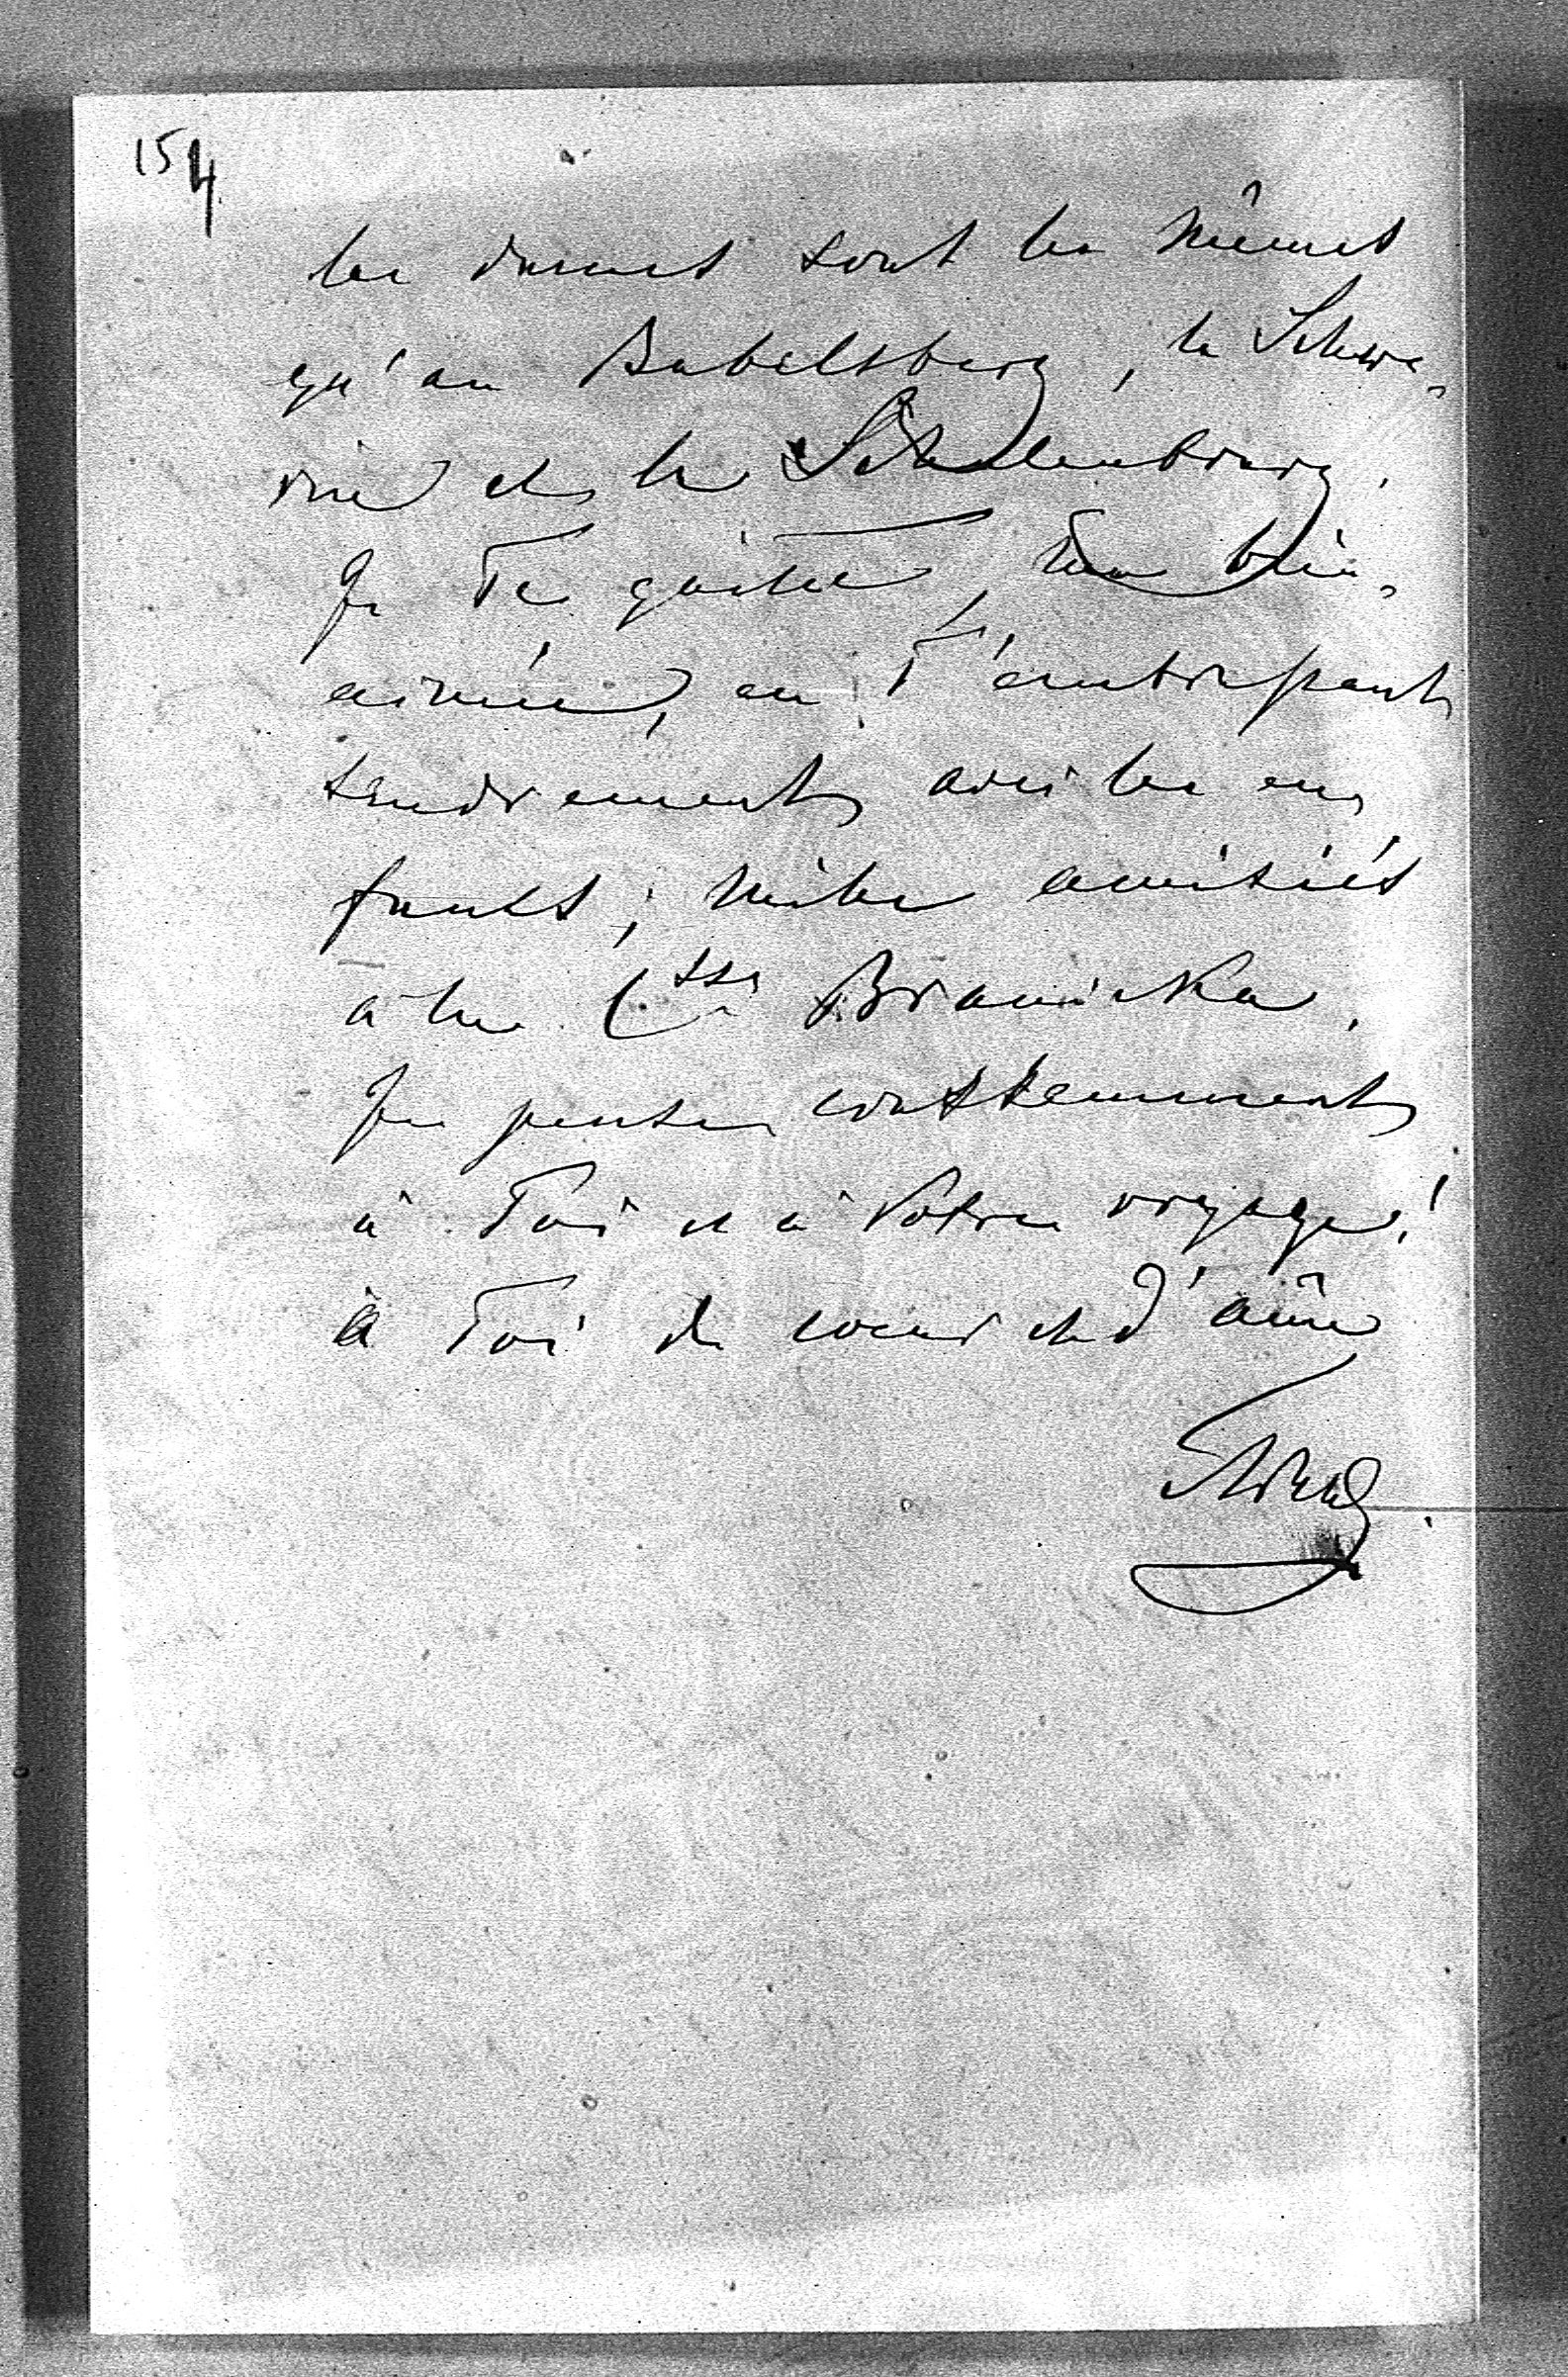 154
les dames sont les mêmes
qu'au Babelsberg, la Schwe-
rin et la Schulenbourg.
Je Te quitte, ma bien-
aimée, en T'embrassant
tendrement avec les en-
fants; mille amitiés
à la Ctsse Branicka.
Je pense constamment
à Toi et à Votre voyage!
à Toi de coeur et d'âme